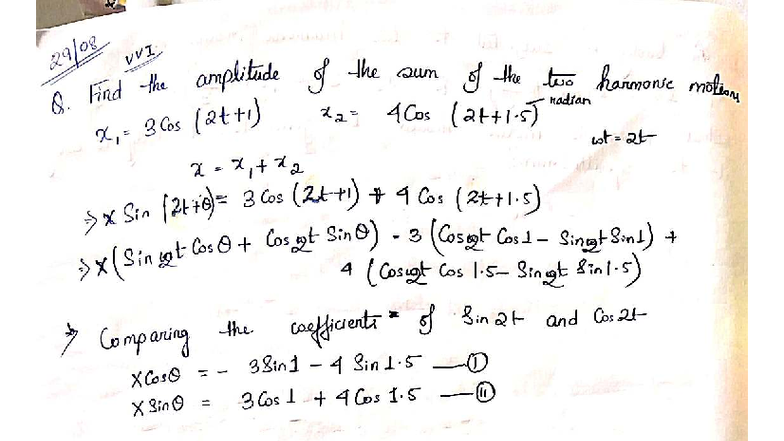 29/08
VVI
Q. Find the amplitude of the sum of the two harmonic motions
x₁ = 3 Cos (2t+1) x₂ = 4 Cos (2t+1.5) radian
ωt = 2t
x = x₁ + x₂
⇒ x Sin (2t+θ) = 3 Cos (2t+1) + 4 Cos (2t+1.5)
⇒ x (Sin 2t Cos θ + Cos 2t Sin θ) = 3 (Cos 2t Cos 1 − Sin 2t Sin 1) +
4 (Cos 2t Cos 1.5 − Sin 2t Sin 1.5)
⇒ Comparing the coefficients of Sin 2t and Cos 2t
x Cos θ = − 3 Sin 1 − 4 Sin 1.5 — (I)
x Sin θ = 3 Cos 1 + 4 Cos 1.5 — (II)